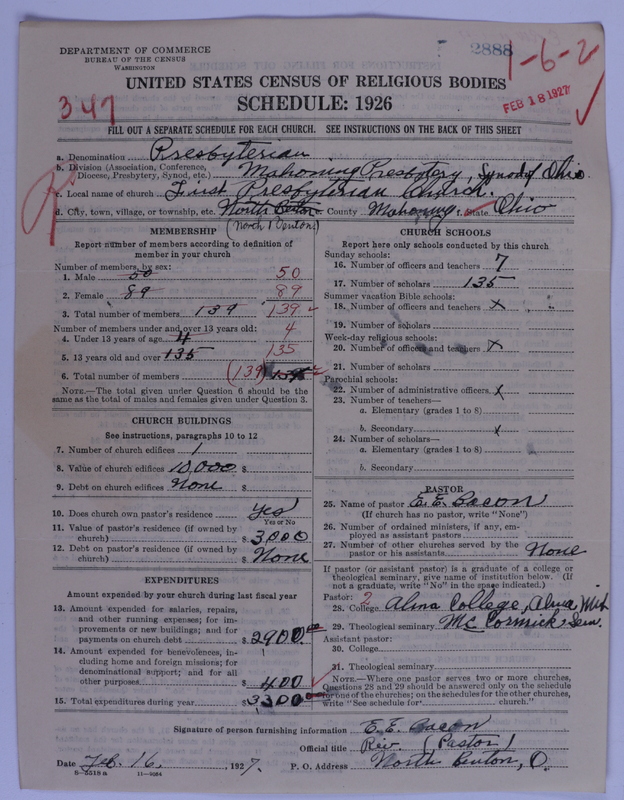 DEPARTMENT OF COMMERCE
BUREAU OF THE CENSUS
WASHINGTON
2888
1-6-2
347
FEB 18 1927
UNITED STATES CENSUS OF RELIGIOUS BODIES
SCHEDULE: 1926
FILL OUT A SEPARATE SCHEDULE FOR EACH CHURCH. SEE INSTRUCTIONS ON THE BACK OF THIS SHEET
a. Denomination Presbyterian
b. Division (Association, Conference, Diocese, Presbytery, Synod, etc.) Mahoning Presbytery, Synod of Ohio
c. Local name of church First Presbyterian Church.
d. City, town, village, or township, etc. North Benton e. County Mahoning f. State Ohio
(North Benton)
MEMBERSHIP
Report number of members according to definition of
member in your church
Number of members, by sex:
1. Male 50 50
2. Female 89 89
3. Total number of members 139 139
Number of members under and over 13 years old:
4. Under 13 years of age 4 4
5. 13 years old and over 135 135
6. Total number of members (139)
NOTE.—The total given under Question 6 should be the
same as the total of males and females given under Question 3.
CHURCH BUILDINGS
See instructions, paragraphs 10 to 12
7. Number of church edifices 1
8. Value of church edifices 10,000 $
9. Debt on church edifices None $
10. Does church own pastor's residence Yes
Yes or No
11. Value of pastor's residence (if owned by
church) $ 3,000
12. Debt on pastor's residence (if owned by
church) $ None
EXPENDITURES
Amount expended by your church during last fiscal year
13. Amount expended for salaries, repairs,
and other running expenses; for im-
provements or new buildings; and for
payments on church debt $ 2900.00
14. Amount expended for benevolences, in-
cluding home and foreign missions; for
denominational support; and for all
other purposes $ 400
15. Total expenditures during year $ 3300.00
CHURCH SCHOOLS
Report here only schools conducted by this church
Sunday schools:
16. Number of officers and teachers 7
17. Number of scholars 135
Summer vacation Bible schools:
18. Number of officers and teachers x
19. Number of scholars
Week-day religious schools:
20. Number of officers and teachers x
21. Number of scholars
Parochial schools:
22. Number of administrative officers x
23. Number of teachers—
a. Elementary (grades 1 to 8)
b. Secondary x
24. Number of scholars—
a. Elementary (grades 1 to 8)
b. Secondary
PASTOR
25. Name of pastor E. E. Bacon
(If church has no pastor, write "None")
26. Number of ordained ministers, if any, em-
ployed as assistant pastors
27. Number of other churches served by the
pastor or his assistants None
If pastor (or assistant pastor) is a graduate of a college or
theological seminary, give name of institution below. (If
not a graduate, write "No" in the space indicated.)
Pastor: 2
28. College Alma College, Alma Mich
29. Theological seminary McCormick Sem.
Assistant pastor:
30. College
31. Theological seminary
NOTE.—Where one pastor serves two or more churches,
Questions 28 and 29 should be answered only on the schedule
for one of the churches; on the schedules for the other churches,
write "See schedule for church."
Signature of person furnishing information E. E. Bacon
Official title Rev. (Pastor)
Date Feb. 16, 1927. P. O. Address North Benton, O.
8-5518a 11-9084